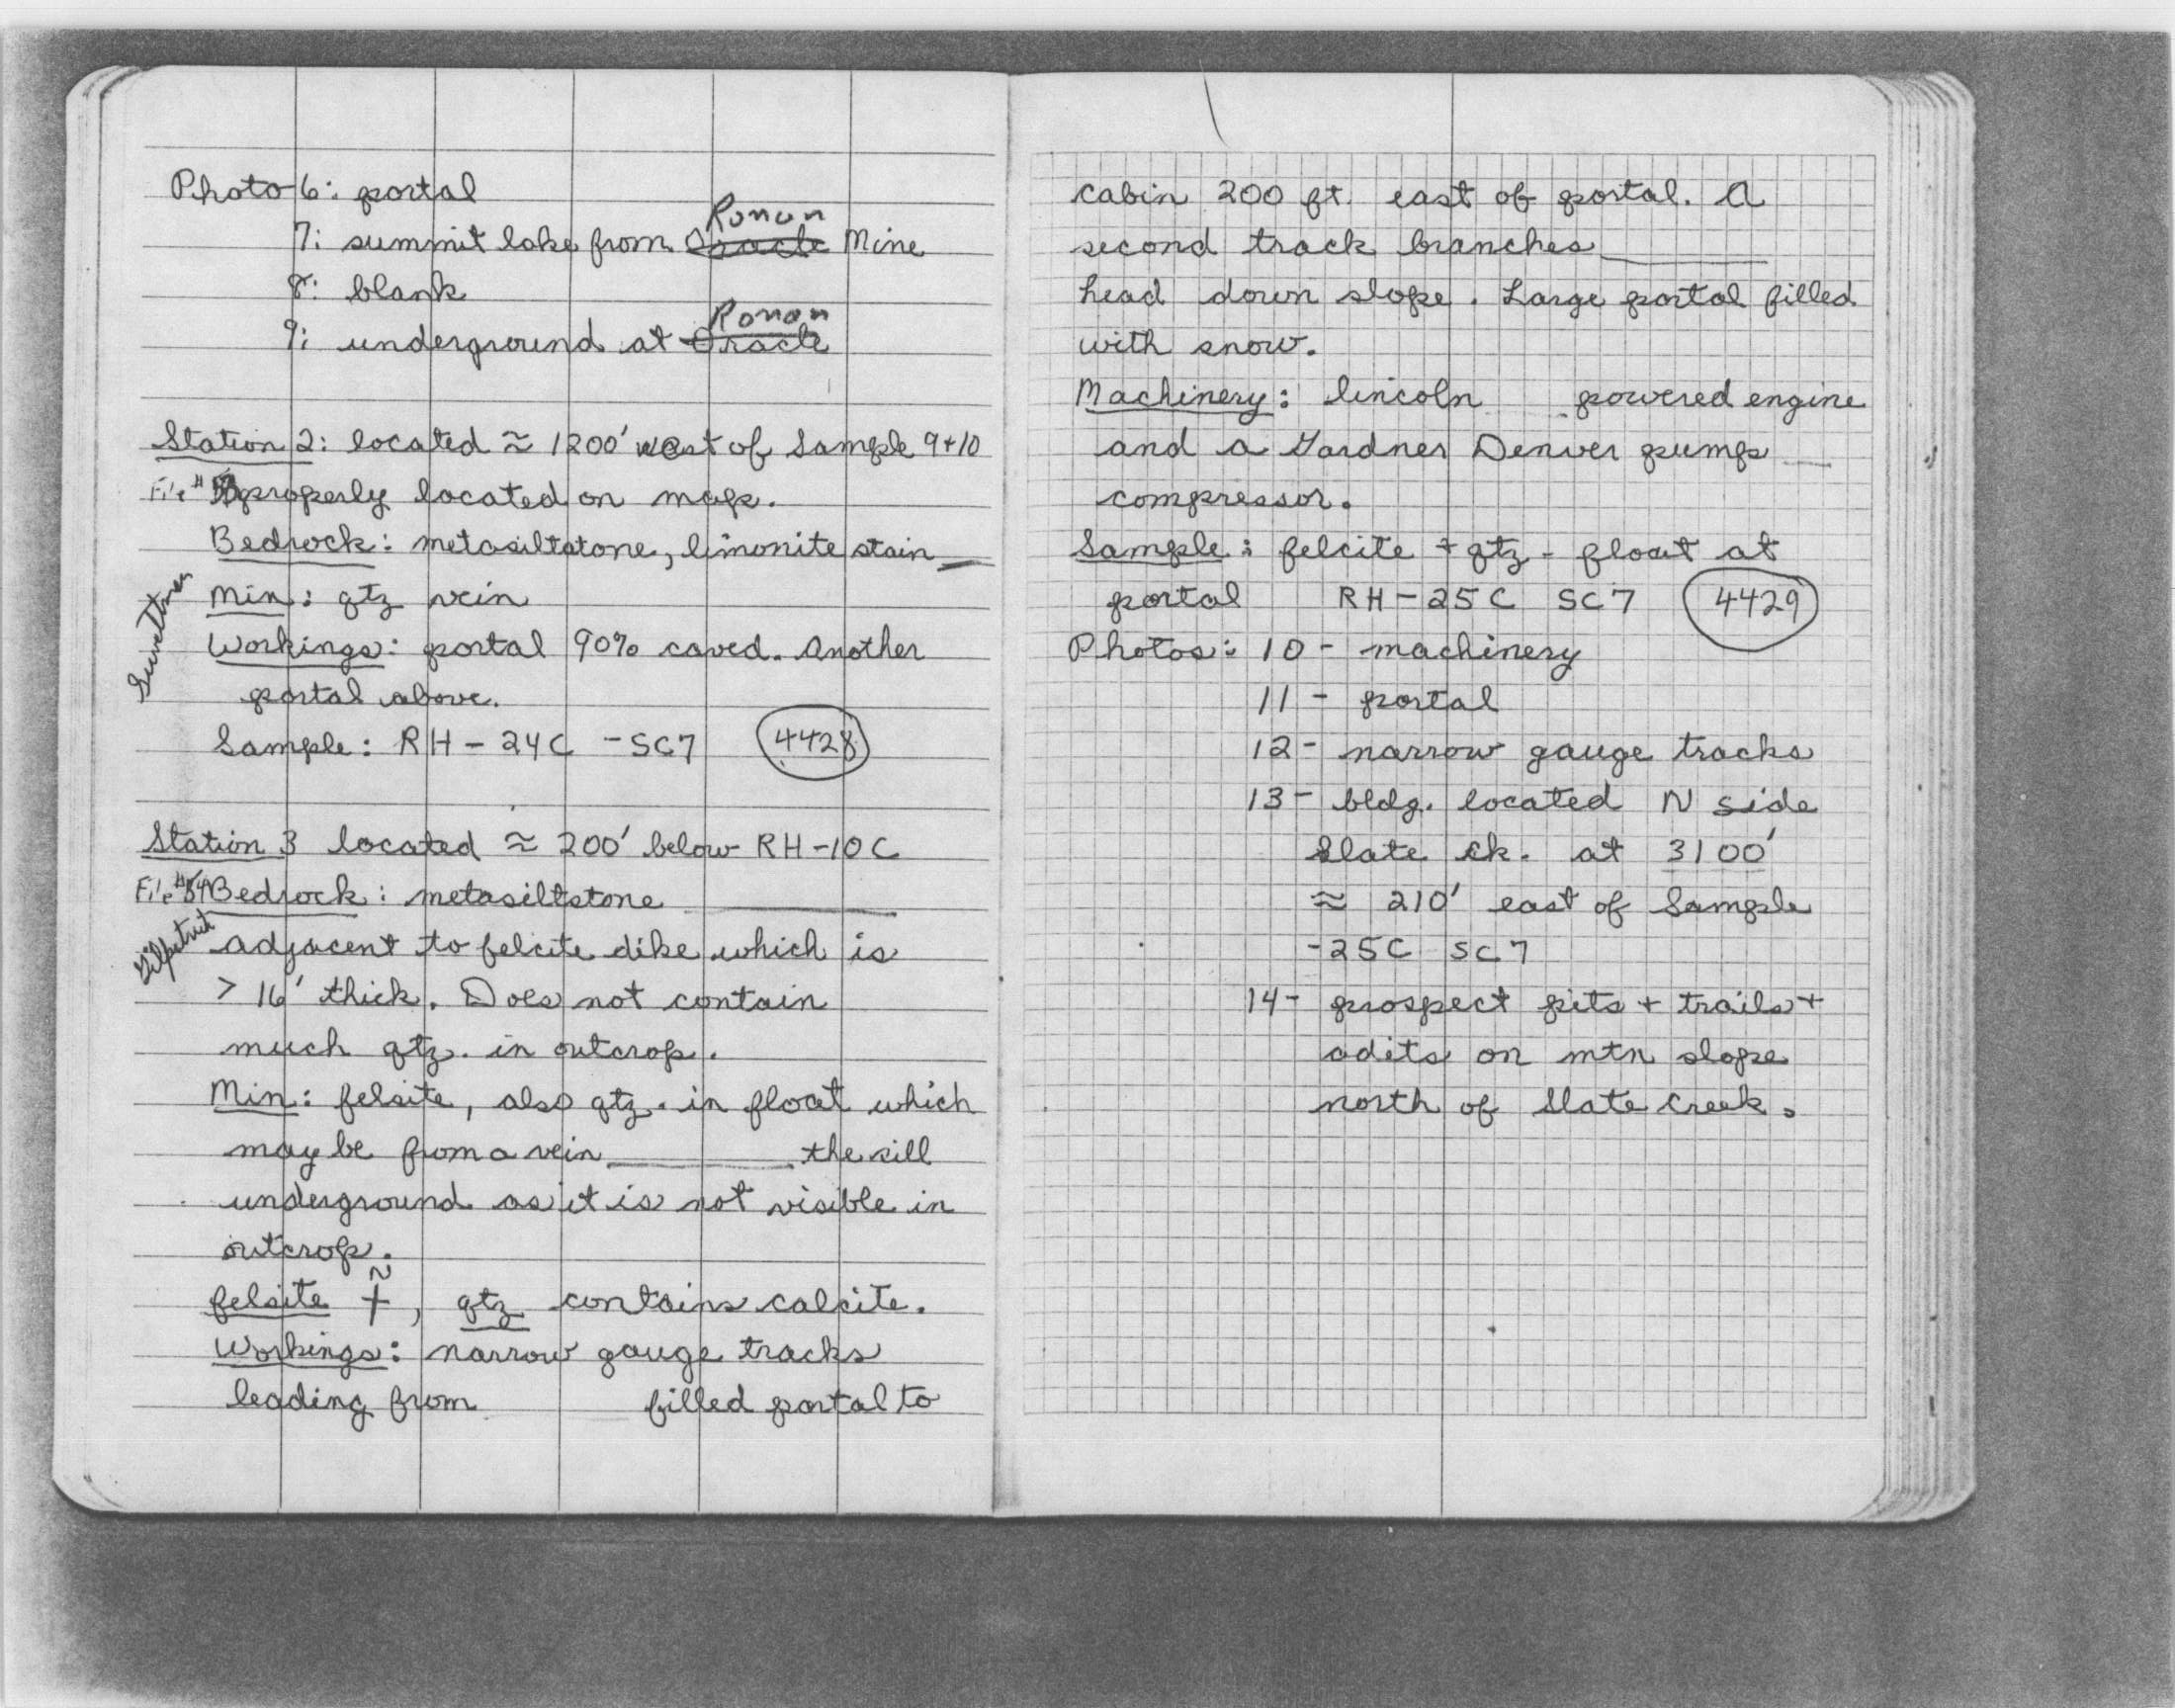 Photo 6: portal
Ronan
7: summit lake from Oracle Mine
8: blank
Ronan
9: underground at Oracle
Station 2: located ≈ 1200' west of Sample 9+10
File # properly located on map.
Bedrock: metasiltstone, limonite stain
Min: qtz vein
Workings: portal 90% caved. Another
portal above.
Sample: RH-24C -SC7 4428
Station 3 located ≈ 200' below RH-10C
File #54 Bedrock: metasiltstone
Gilpatrick
adjacent to felcite dike which is
> 16' thick. Does not contain
much qtz. in outcrop.
Min: felsite, also qtz. in float which
may be from a vein ______ the sill
underground as it is not visible in
outcrop.
felsite +, qtz contains calcite.
Workings: narrow gauge tracks
leading from filled portal to
cabin 200 ft. east of portal. A
second track branches ______
head down slope. Large portal filled
with snow.
Machinery: lincoln powered engine
and a Gardner Denver pump
compressor.
Sample: felcite + qtz - float at
portal RH-25C SC7 4429
Photos: 10 - machinery
11 - portal
12 - narrow gauge tracks
13 - bldg. located N side
Slate ck. at 3100'
≈ 210' east of Sample
-25C SC7
14 - prospect pits + trails +
adits on mtn slope
north of Slate Creek.